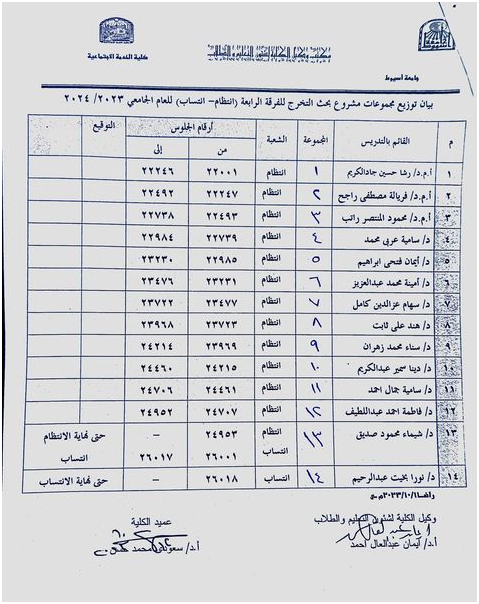 كلية الخدمة الاجتماعية
مكتب وكيل الكلية لشئون التعليم والطلاب
جامعة أسيوط
بيان توزيع مجموعات مشروع بحث التخرج للفرقة الرابعة (انتظام – انتساب) للعام الجامعي ٢٠٢٣/ ٢٠٢٤
م القائم بالتدريس المجموعة الشعبة أرقام الجلوس التوقيع
من إلى
١ أ.م.د/ رشا حسين جادالكريم ١ انتظام ٢٢٠٠١ ٢٢٢٤٦
٢ أ.م.د/ فريالة مصطفى راجح ٢ انتظام ٢٢٢٤٧ ٢٢٤٩٢
٣ أ.م.د/ محمود المنتصر راتب ٣ انتظام ٢٢٤٩٣ ٢٢٧٣٨
٤ د/ سامية عربى محمد ٤ انتظام ٢٢٧٣٩ ٢٢٩٨٤
٥ د/ أيمان فتحى ابراهيم ٥ انتظام ٢٢٩٨٥ ٢٣٢٣٠
٦ د/ أمينة محمد عبدالعزيز ٦ انتظام ٢٣٢٣١ ٢٣٤٧٦
٧ د/ سهام عزالدين كامل ٧ انتظام ٢٣٤٧٧ ٢٣٧٢٢
٨ د/ هند على ثابت ٨ انتظام ٢٣٧٢٣ ٢٣٩٦٨
٩ د/ سناء محمد زهران ٩ انتظام ٢٣٩٦٩ ٢٤٢١٤
١٠ د/ دينا سمير عبدالكريم ١٠ انتظام ٢٤٢١٥ ٢٤٤٦٠
١١ د/ سامية جمال احمد ١١ انتظام ٢٤٤٦١ ٢٤٧٠٦
١٢ د/ فاطمة احمد عبداللطيف ١٢ انتظام ٢٤٧٠٧ ٢٤٩٥٢
١٣ د/ شيماء محمود صديق ١٣ انتظام ٢٤٩٥٣ – حتى نهاية الانتظام
انتساب ٢٦٠٠١ ٢٦٠١٧ انتساب
١٤ د/ نورا بخيت عبدالرحيم ١٤ انتساب ٢٦٠١٨ – حتى نهاية الانتساب
وكيل الكلية لشئون التعليم والطلاب
أ.د/ أيمان عبدالعال احمد
عميد الكلية
محمد